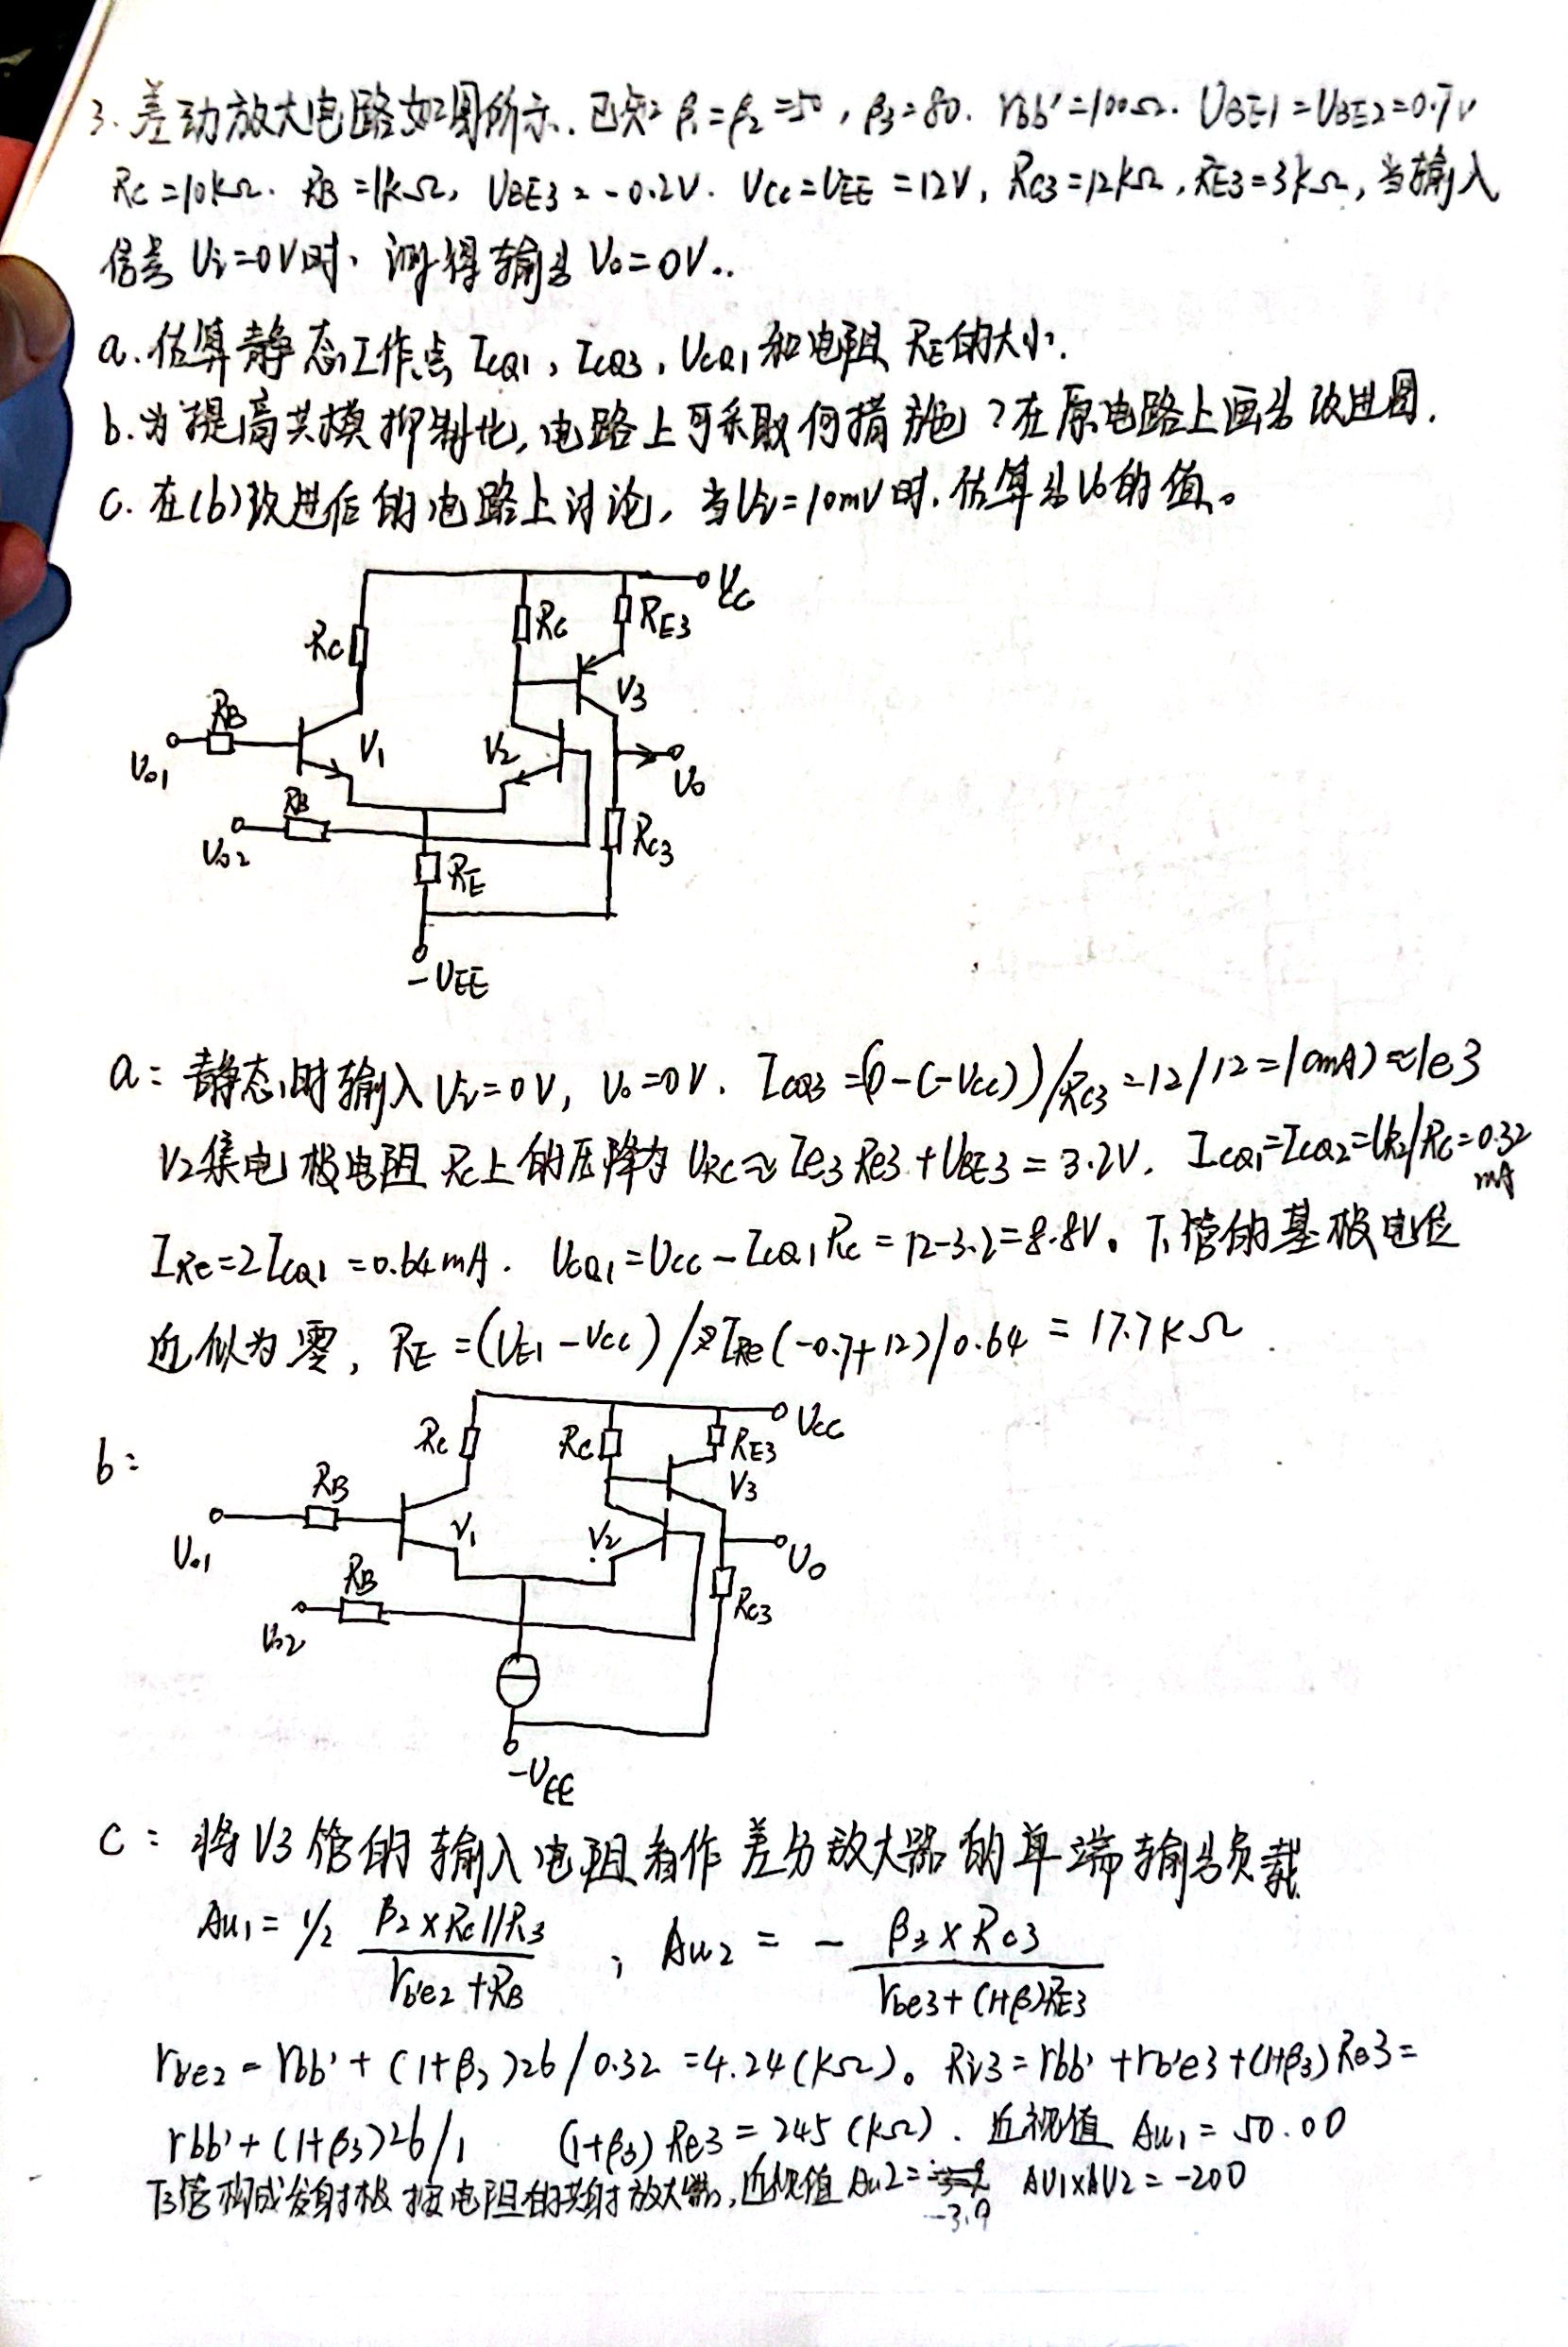 3. 差动放大电路如图所示. 已知 β₁=β₂=50, β₃=80. rbb'=100Ω. UBE1=UBE2=0.7V
RC=10kΩ. RB=1kΩ, UBE3=-0.2V. VCC=VEE=12V, RC3=12kΩ, RE3=3kΩ, 当输入
信号 Ui=0V时、测得输出 Vo=0V..
a. 估算静态工作点 ICQ1, ICQ3, UCQ1 和电阻 RE的大小.
b. 为提高共模抑制比, 电路上可采取何措施? 在原电路上画出改进图.
c. 在(b)改进后的电路上讨论, 当Ui=10mV时. 估算出Uo的值。
VCC
RC
RC
RE3
V3
RB
V1
V2
Uo1
Uo
RB
Uo2
RC3
RE
-VEE
a: 静态时输入 Ui=0V, Uo=0V. ICQ3=(0-(-VCC))/RC3=12/12=1(mA)≈Ie3
V2集电极电阻 Rc上的压降为 URC≈Ie3Re3+UBE3=3.2V. ICQ1=ICQ2=UR2/RC=0.32
mA
IRe=2ICQ1=0.64mA. UCQ1=UCC-ICQ1RC=12-3.2=8.8V。T1管的基极电位
近似为零, RE=(UE1-VCC)/IRe(-0.7+12)/0.64=17.7KΩ
b:
RC
RC
RE3
VCC
V3
RB
V1
V2
Uo1
Uo
RB
RC3
Uo2
-VEE
c: 将V3管的输入电阻看作差分放大器的单端输出负载
Au1=1/2 β2×RC//R3 / rb'e2+RB ; Au2=- β3×RC3 / rbe3+(1+β)RE3
rbe2=rbb'+(1+β2)26/0.32=4.24(KΩ)。Ri3=rbb'+rb'e3+(1+β3)Re3=
rbb'+(1+β3)26/1 (1+β3)Re3=245(KΩ). 近视值 Au1=50.00
T3管构成发射极接电阻的共射放大器, 近视值 Au2= -3.9 AU1×AU2=-200